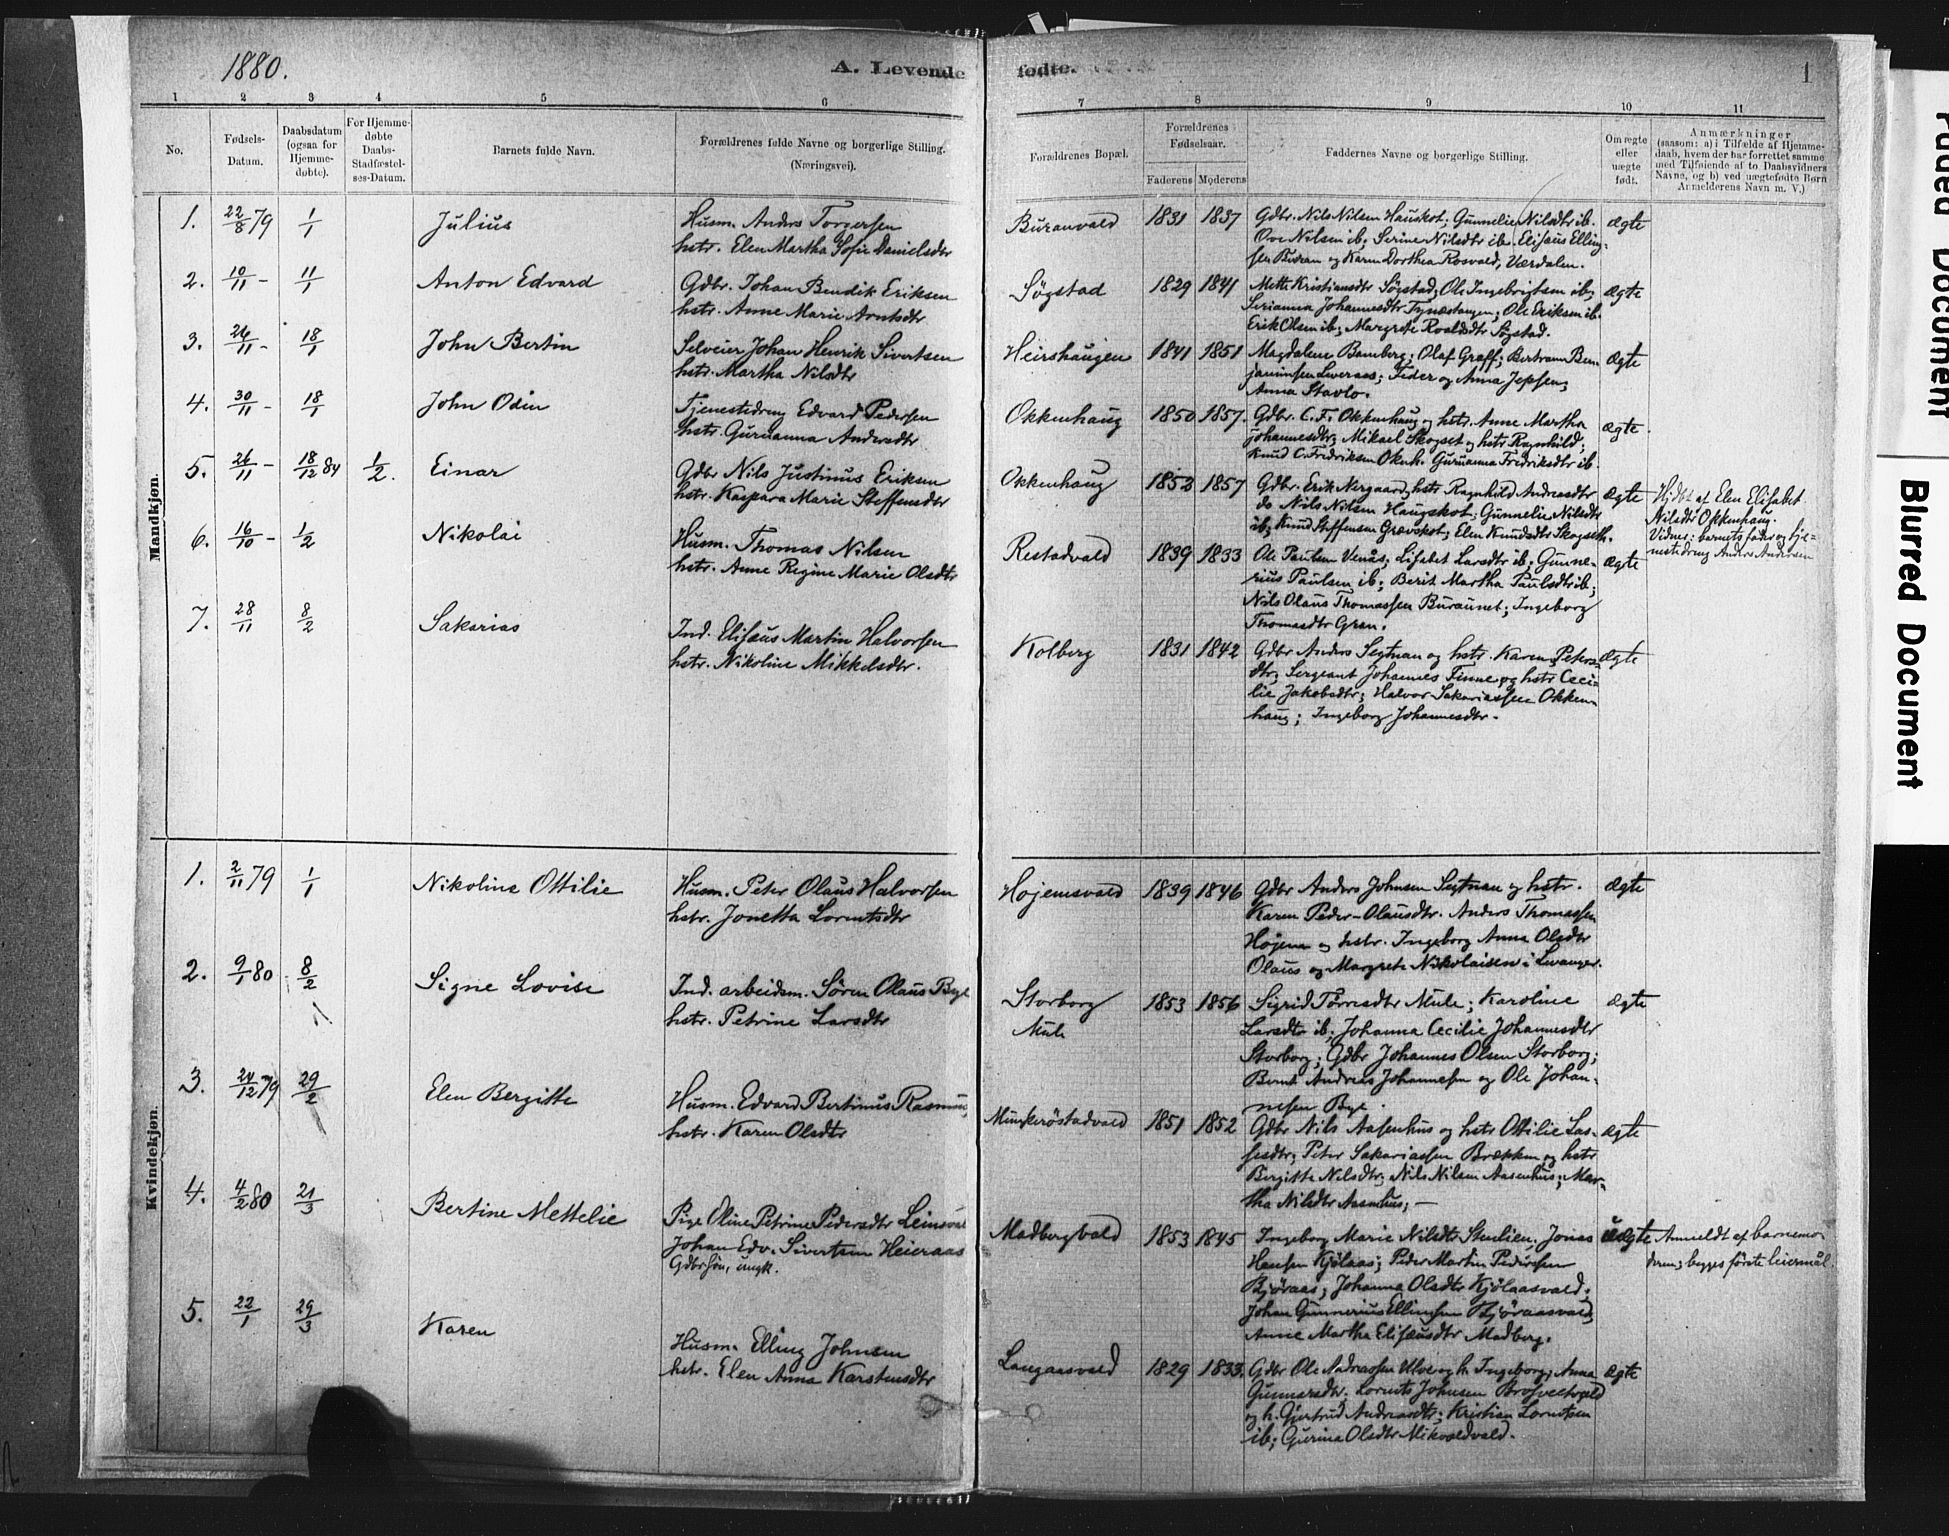 1880.
A. Levende fødte.
1
1 2 3 4 5 6 7 8 9 10 11
No.
Fødsels-Datum.
Daabsdatum (ogsaa for Hjemmedøbte).
For Hjemmedøbte Daabs-Stadfæstelses-Datum.
Barnets fulde Navn.
Forældrenes fulde Navne og borgerlige Stilling.
(Næringsvei).
Forældrenes Bopæl.
Forældrenes Fødselsaar.
Faderens Moderens
Faddernes Navne og borgerlige Stilling.
Om ægte eller uægte født.
Anmærkninger
(saasom: a) i Tilfælde af Hjemmedaab, hvem der har forrettet samme med Tilføiende af to Daabsvidners Navne, og b) ved uægtefødte Børn Anmelderens Navn m. V.)
Mandkjøn.
1. 22/8 79 1/1 Julius
Husm. Anders Torgersen
hstr. Elen Martha Sofie Danielsdtr
Buranvald 1831 1837
Gdbr. Nils Nilsen Hauskot; Gunnelie Nilsdtr ib.
Ove Nilsen ib; Serine Nilsdtr ib. Elisæus Elling-
sen Buran og Karen Dorthea Rosvald, Værdalen.
ægte
2. 10/11 - 11/1 Anton Edvard
Gdbr. Johan Bendik Eriksen
hstr. Anne Marie Arntsdtr
Søgstad 1829 1841
Mette Kristiansdtr Søgstad; Ole Ingebrigtsen ib;
Serianna Johannesdtr Tynæstangen; Ole Eriksen ib.
Erik Olsen ib; Margrete Roaldsdtr Søgstad.
ægte
3. 26/11 - 18/1 John Bertin
Selveier Johan Henrik Sivertsen
hstr. Martha Nilsdtr
Heirshaugen 1841 1851
Magdalene Bamberg; Olaf Graff; Bertram Ben-
jaminsen Leveraas; Peder og Anna Jepsen;
Anna Stavlo.
ægte
4. 30/11 - 18/1 John Odin
Tjenestedreng Edvard Pedersen
hstr. Guruanna Andersdtr
Okkenhaug 1850 1857.
Gdbr. C. F. Okkenhaug og hstr. Anne Martha
Johannesdtr; Mikael Skogset og hstr Ragnhild;
Knud C. Fredriksen Okenh. Guruanna Fredriksdtr ib.
ægte.
5. 26/11 - 18/12 84 1/2. Einar
Gdbr Nils Justinus Eriksen
hstr. Kaspara Marie Steffensdtr
Okkenhaug 1853 1857
Gdbr. Erik Nergaard, hstr Ragnhild Andreasdtr
do Nils Nilsen Haugskot; Gunnelie Nilsdtr
ib; Knud Steffensen Grævskot; Elen Knudsdtr Skogseth.
ægte
Hjdbt af Elen Elisabet
Nilsdtr Okkenhaug.
Vidner: barnets fader og tje-
nestedreng Anders Andersen
6. 16/10 - 1/2 Nikolai
Husm. Thomas Nilsen
hstr. Anne Regine Marie Olsdtr
Restadvald 1839 1833
Ole Paulsen Venås; Lisabet Larsdtr ib; Gunne-
rius Paulsen ib; Berit Martha Paulsdtr ib;
Nils Olaus Thomassen Buraunet; Ingeborg
Thomasdtr Gran.
ægte
7. 28/11 8/2 Sakarias
Ind. Elisæus Martin Halvorsen
hstr. Nikoline Mikkelsdtr.
Kolberg 1831 1842
Gdbr Anders Segtnan og hstr. Karen Peters-
dtr; Sergeant Johannes Finne og hstr Ceci-
lie Jakobsdtr; Halvor Sakariassen Okken-
haug; Ingeborg Johannesdtr.
Ægte
Kvindekjøn.
1. 2/11 79 1/1 Nikoline Ottilie
Husm. Peter Olaus Halvorsen
hstr. Jonetta Lorntsdtr
Højemsvald 1839 1846
Gdbr Anders Johnsen Segtnan og hstr.
Karen Peder-Olausdtr. Anders Thomassen
Højem og hstr. Ingeborg Anna Olsdtr
Olaus og Margrete Nikolaisen i Levanger.
Ægte
2. 9/1 80 8/2 Signe Lovise
Ind. arbeidsm. Sören Olaus Bye
hstr. Petrine Larsdtr
Storborg Mule 1853 1856
Sigrid Tørresdtr Mule; Karoline
Larsdtr ib; Johanna Cecilie Johannesdtr
Storborg; Gdbr Johannes Olsen Storborg;
Bernt Andreas Johannesen og Ole Johan-
nesen Bye.
ægte
3. 24/12 79 29/2 Elen Bergitte
Husm. Edvard Bertinus Rasmus,
hstr. Karen Olsdtr
Munkeröstadvald 1851 1852
Gdbr Nils Aasenhus og hstr Ottilie Las-
sesdtr; Peter Sakariassen Brækken og hstr
Bergitte Nilsdtr; Nils Nilsen Aasenhus; Mar-
tha Nilsdtr Aasenhus; —
Ægte
4. 4/2 80 21/3 Bertine Mettelie
Pige Oline Petrine Pedersdtr Leinsval
Johan Edv. Sivertsen Heieraas
Gdbrsøn, ungk.
Madbergvald 1853 1845
Ingeborg Marie Nilsdtr Stuelien. Jonas
Hansen Kjölaas; Peder Martin Pedersen
Björaas; Johanna Olsdtr Kjölaasvald;
Johan Gunnerius Ellingsen Björaasvald;
Anne Martha Elisæusdtr Madberg.
uægte
Anmeldt af barnemo-
deren; begges første leiermål.
5. 22/1 29/3 Karen
Husm. Elling Johnsen
hstr. Elen Anna Karstensdtr
Langaasvald 1829 1833.
Gdbr Ole Andreassen Ulve og h. Ingeborg; Anna
Gunnarsdtr. Lornts Johnsen
og h. Gjertrud Andreasdtr; Kristian Lorntsen
ib; Gjerina Olsdtr Mikvoldvald.
ægte
Faded Document
Blurred Document